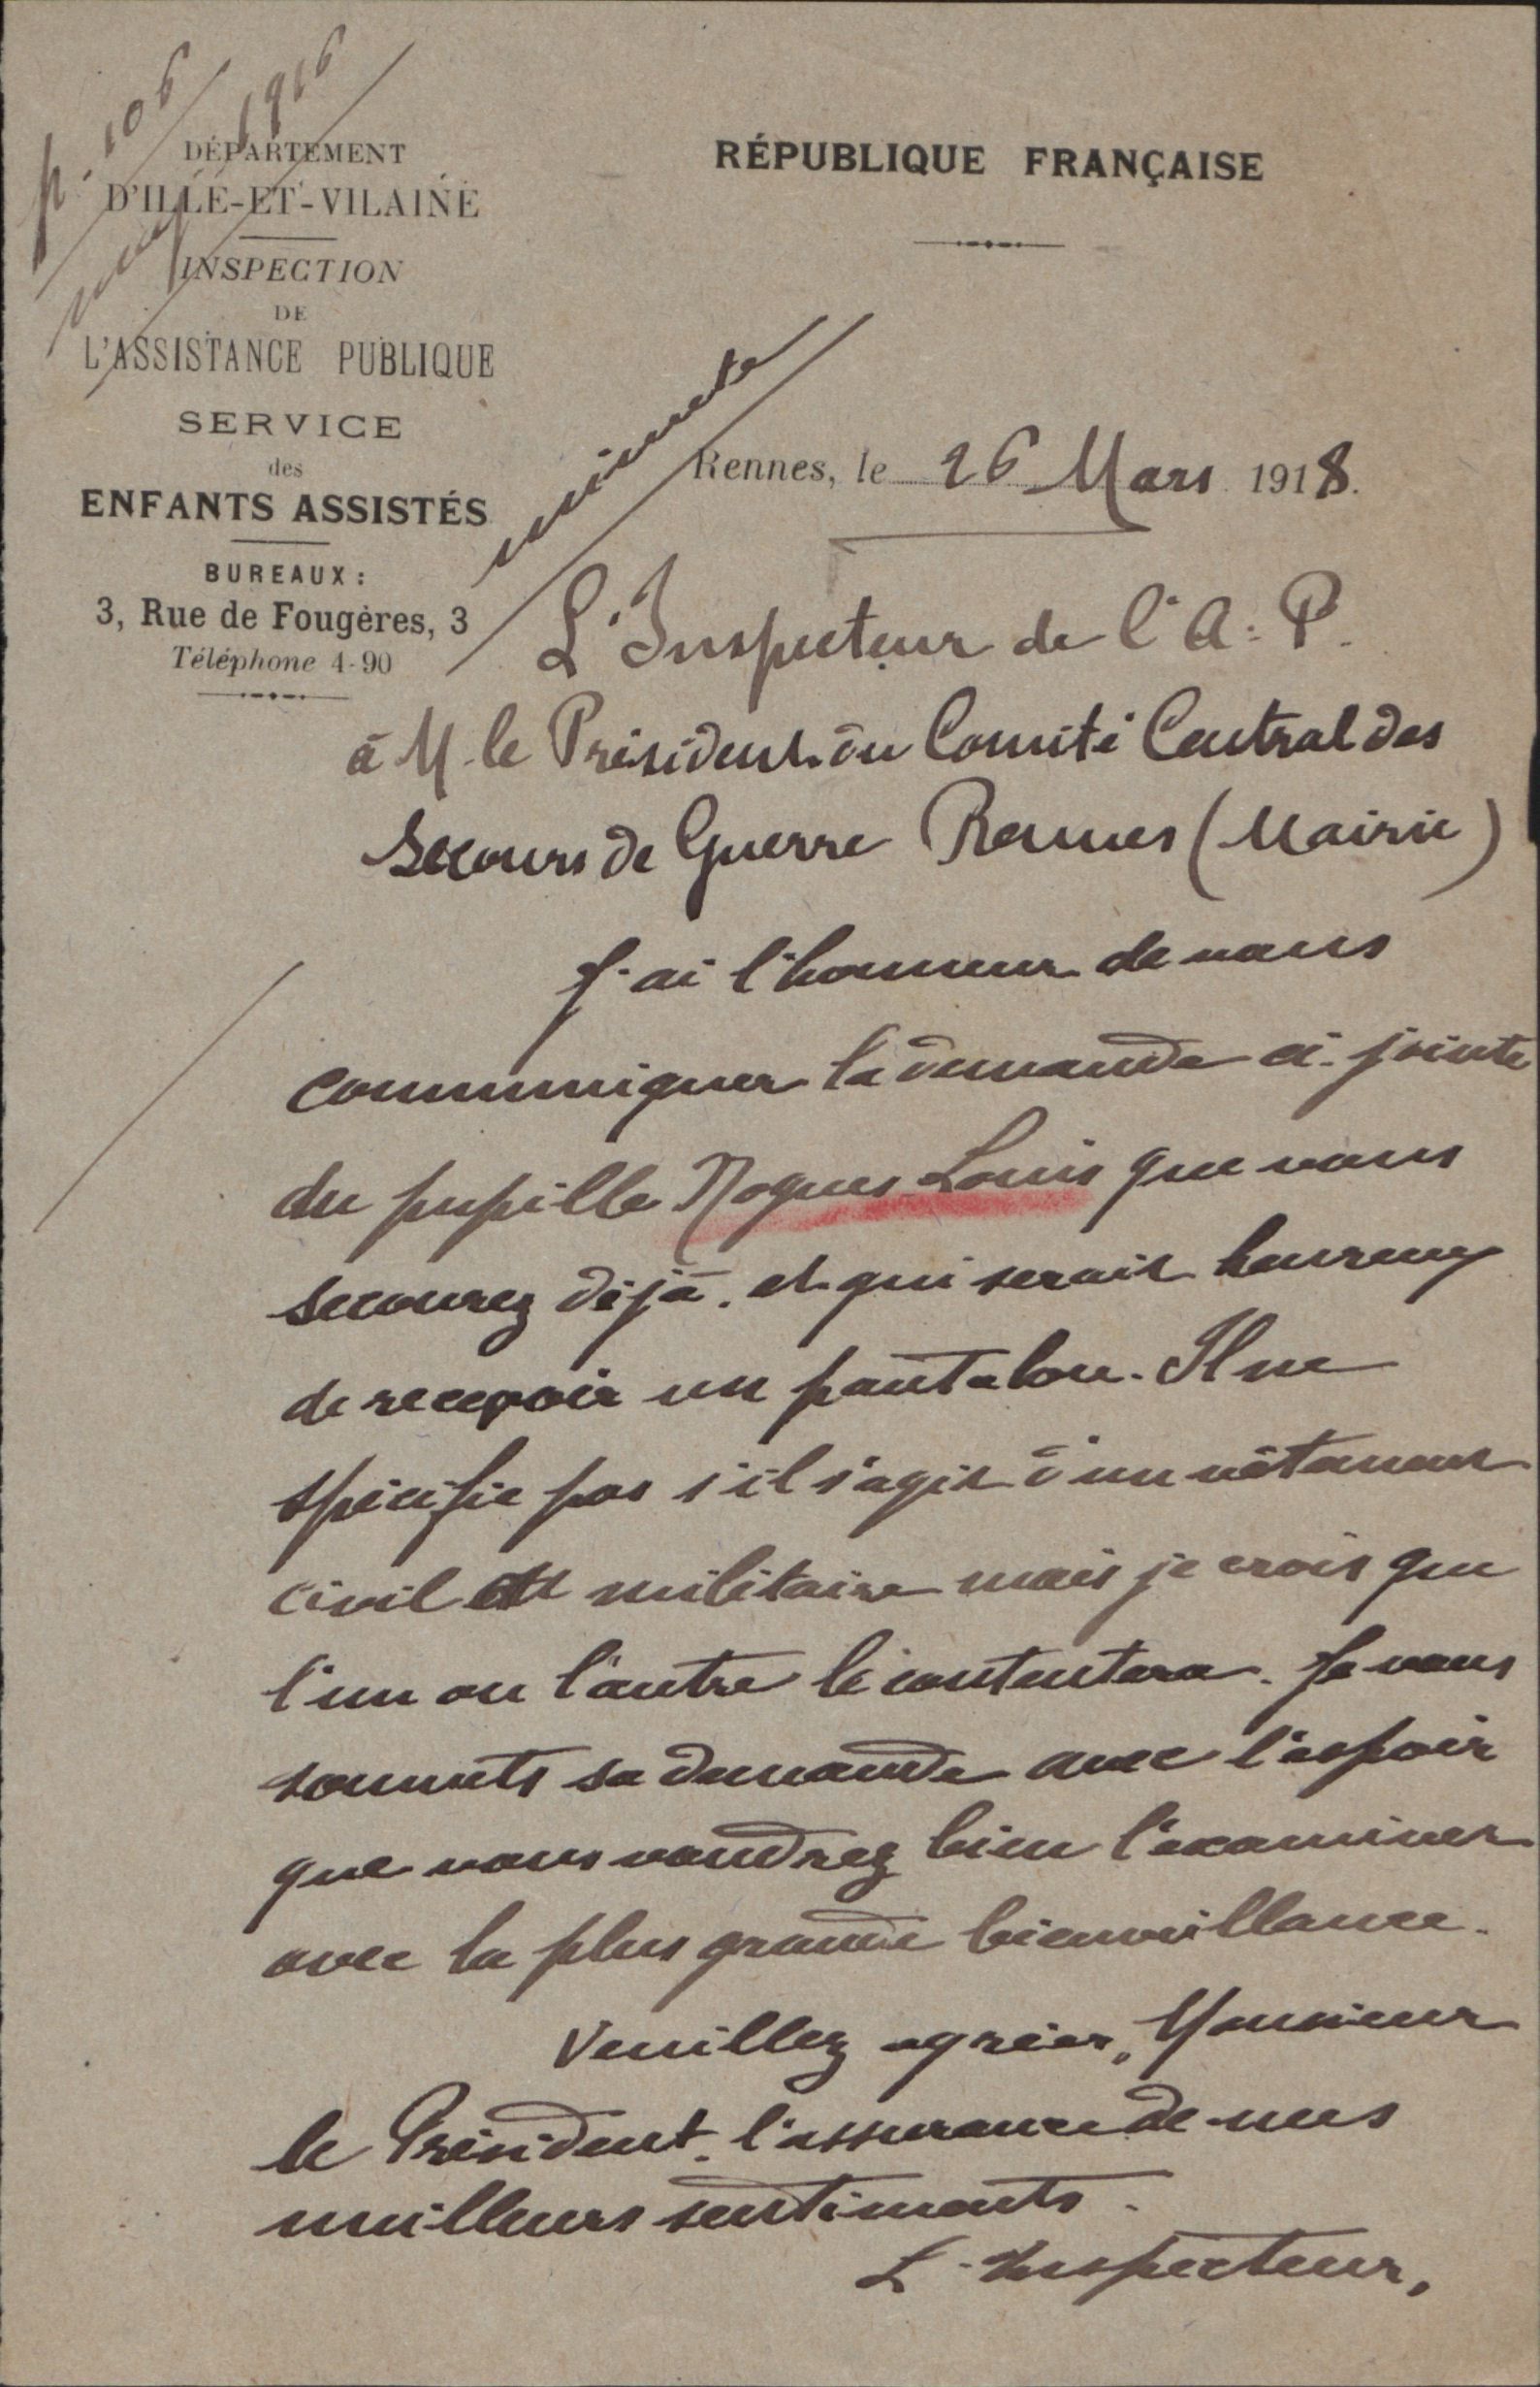 p. 106
1916
DÉPARTEMENT
D'ILLE-ET-VILAINE
INSPECTION
DE
L'ASSISTANCE PUBLIQUE
SERVICE
des
ENFANTS ASSISTÉS
BUREAUX :
3, Rue de Fougères, 3
Téléphone 4-90
RÉPUBLIQUE FRANÇAISE
Rennes, le 26 Mars 1918.
L'Inspecteur de l'A. P.
à M. le Président du Comité Central des
Secours de Guerre Rennes (Mairie)
J'ai l'honneur de vous
communiquer la demande ci-jointe
du pupille Nogues Louis que vous
secourez déjà, et qui serait heureux
de recevoir un pantalon. Il ne
spécifie pas s'il s'agit d'un vêtement
civil ou militaire mais je crois que
l'un ou l'autre le contentera. Je vous
soumets sa demande avec l'espoir
que vous voudrez bien l'examiner
avec la plus grande bienveillance.
Veuillez agréer, Monsieur
le Président, l'assurance de mes
meilleurs sentiments.
L'Inspecteur,